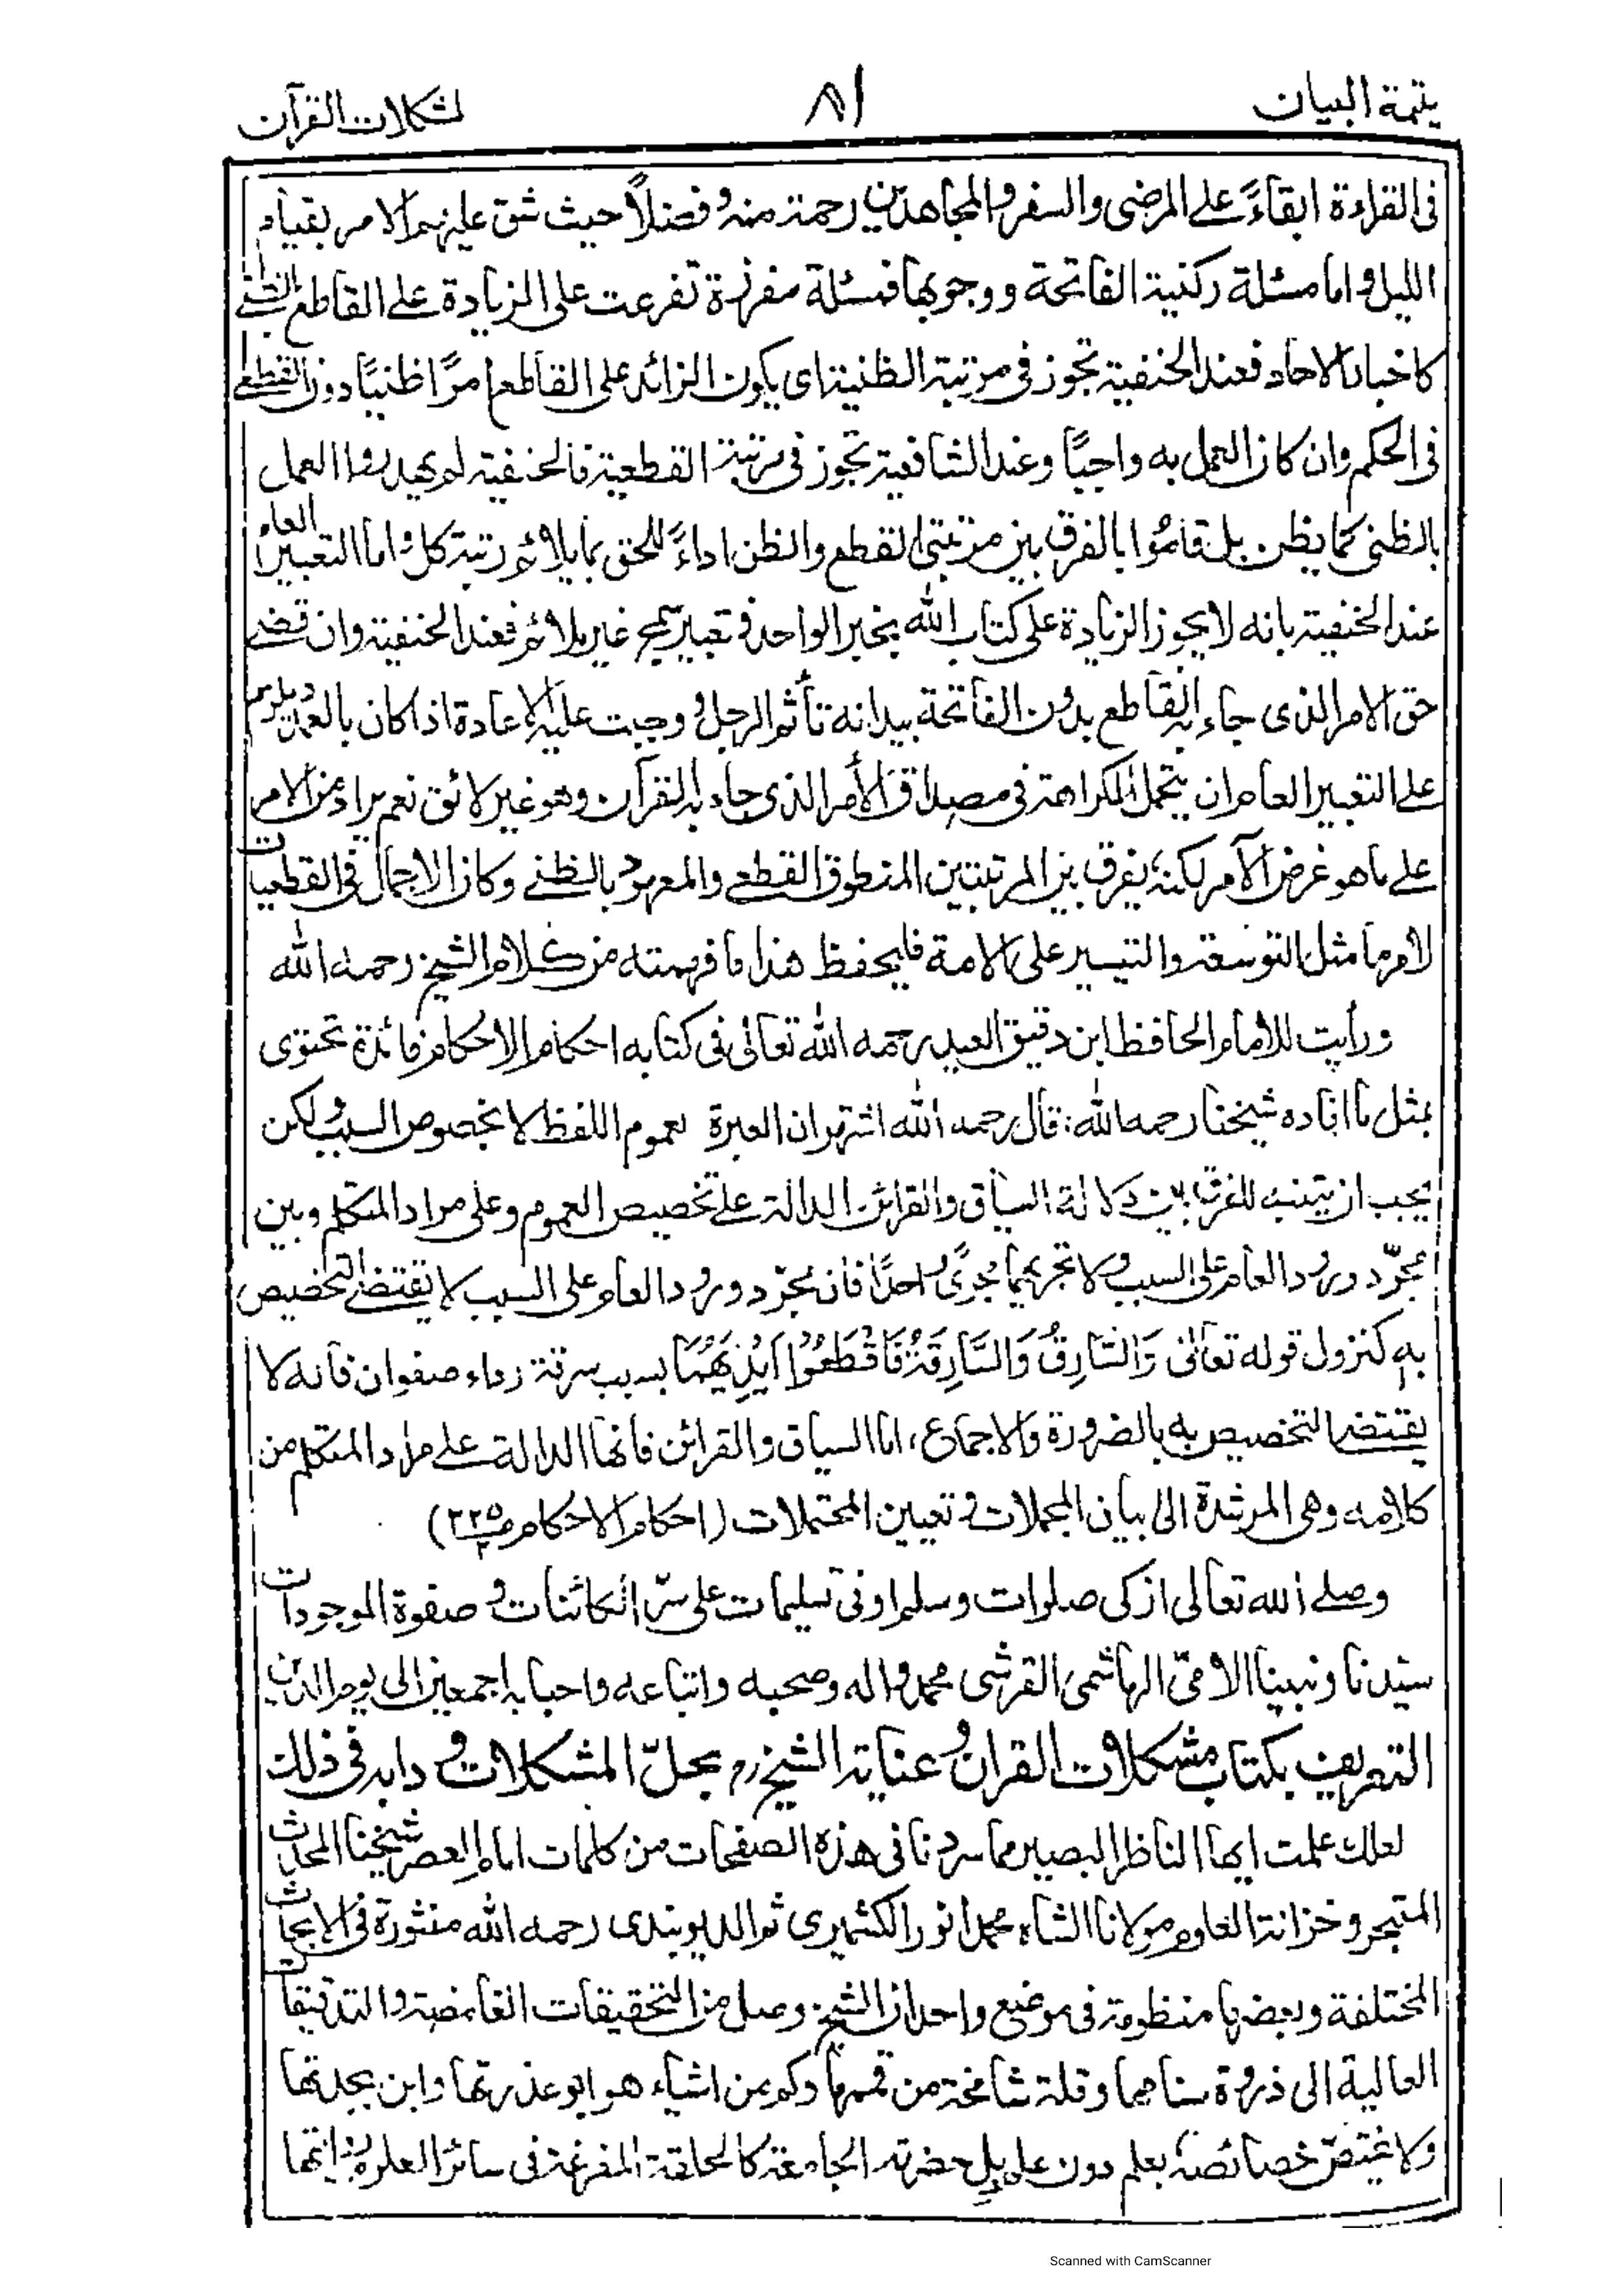 يتيمة البيان
٨١
لمشكلات القرآن
فى القراءة ابقاءً على المرضى والسفر والمجاهدين رحمة منه وفضلاً حيث شق عليهم الامر بقيام
الليل واما مسئلة ركنية الفاتحة ووجوبها فمسئلة مفرزة تفرعت على الزيادة على القاطع بالظنى
كاخبار الاحاد فعند الحنفية تجوز فى مرتبة الظنية اى يكون الزائد على القاطع امرًا ظنيًا دون القطع
فى الحكم وان كان العمل به واجبًا وعند الشافعية تجوز فى مرتبة القطعية فالحنفية لم يهدروا العمل
بالظنى كما يظن بل قاموا بالفرق بين مرتبتى القطع والظن اداءً للحق بما يلائم رتبة كل واما التعبير العام
عند الحنفية بانه لا يجوز الزيادة على كتاب الله بخبر الواحد فتعبير سمج غير ملائم فعند الحنفية وان قضى
حق الامر الذى جاء به القاطع بدون الفاتحة بيد انه تأثم الرجل ووجبت عليه الاعادة اذا كان بالعمد ويلزم
على التعبير العام ان يتحمل الكراهة فى مصداق الأمر الذى جاء به القرآن وهو غير لائق نعم يراد من الامر
على ما هو غرض الآمر لكنه يفرق بين المرتبتين المنطوق القطعى والمعهود بالظنى وكان الاجمال فى القطعيات
لامر ما مثل التوسعة والتيسير على الامة فليحفظ هذا ما فهمته من كلام الشيخ رحمه الله
ورأيت للامام الحافظ ابن دقيق العيد رحمه الله تعالى فى كتابه احكام الاحكام فائدة تحتوى
بمثل ما افاده شيخنا رحمه الله: قال رحمه الله اشتهر ان العبرة لعموم اللفظ لا بخصوص السبب ولكن
يجب ان يتنبه للفرق بين دلالة السياق والقرائن الدالة على تخصيص العموم وعلى مراد المتكلم وبين
مجرّد ورود العام على السبب ولا تجريهما مجرًى واحدًا فان مجرّد ورود العام على السبب لا يقتضى التخصيص
به كنزول قوله تعالى وَالسَّارِقُ وَالسَّارِقَةُ فَاقْطَعُوْا اَيْدِيَهُمَا بسبب سرقة رداء صفوان فانه لا
يقتضى التخصيص به بالضرورة والاجماع، اما السياق والقرائن فانها الدالة على مراد المتكلم من
كلامه وهى المرشدة الى بيان المجملات وتعيين المحتملات (احكام الاحكام ص٢٢٥)
وصلى الله تعالى ازكى صلوات وسلم اوفى تسليمات على سرّ الكائنات وصفوة الموجودات
سيّدنا ونبينا الامىّ الهاشمى القرشى محمد واله وصحبه واتباعه واحبابه اجمعين الى يوم الدين
التعريف بكتاب مشكلات القران وعناية الشيخ رح بحلّ المشكلات ودابه فى ذلك
لعلك علمت ايها الناظر البصير مما سردنا فى هذه الصفحات من كلمات امام العصر شيخنا المحدث
المتبحر وخزانة العلوم مولانا الشاه محمد انور الكشميرى ثم الديوبندى رحمه الله منثورة فى الابحاث
المختلفة وبعضها منظومة فى موضع واحد ان الشيخ وصل من التحقيقات الغامضة والتدقيقات
العالية الى ذروة سنامها وقلة شامخة من قممها وكم من اشياء هو ابو عذرتها وابن بجدتها
ولا يختصّ خصائصه بعلم دون علم بل حضرته الجامعة كالحلقة المفرغة فى سائر العلوم
Scanned with CamScanner